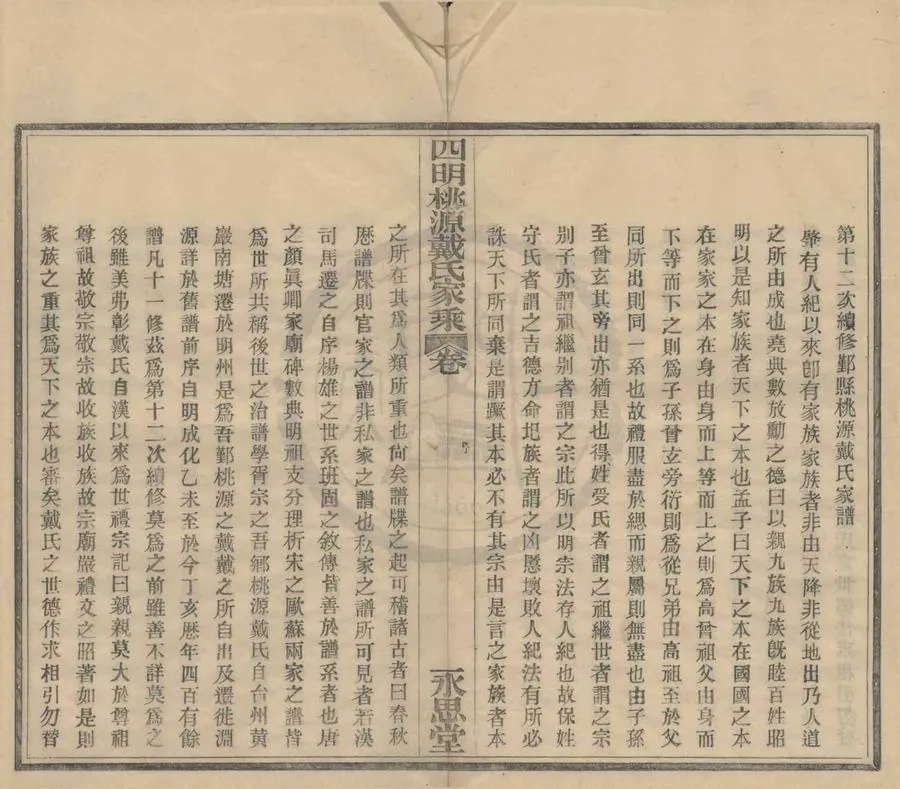 第十二次續修鄞縣桃源戴氏家譜
肇有人紀以來卽有家族家族者非由天降非從地出乃人道
之所由成也堯典數放勳之德曰以親九族九族旣睦百姓昭
明以是知家族者天下之本也孟子曰天下之本在國國之本
在家家之本在身由身而上等而上之則爲高曾祖父由身而
下等而下之則爲子孫曾玄旁衍則爲從兄弟由高祖至於父
同所出則同一系也故禮服盡於緦而親屬則無盡也由子孫
至曾玄其旁出亦猶是也得姓受氏者謂之祖繼世者謂之宗
別子亦謂祖繼別者謂之宗此所以明宗法存人紀也故保姓
守氏者謂之吉德方命圮族者謂之凶慝壞敗人紀法有所必
誅天下所同棄是謂蹶其本必不有其宗由是言之家族者本
四明桃源戴氏家乘 卷
永思堂
之所在其爲人類所重也尙矣譜牒之起可稽諸古者曰春秋
厯譜牒則官家之譜非私家之譜也私家之譜所可見者若漢
司馬遷之自序楊雄之世系班固之敘傳皆善於譜系者也唐
之顏眞卿家廟碑數典明祖支分理析宋之歐蘇兩家之譜皆
爲世所共稱後世之治譜學胥宗之吾鄉桃源戴氏自台州黃
巖南塘遷於明州是爲吾鄞桃源之戴戴之所自出及遷徙淵
源詳於舊譜前序自明成化乙未至於今丁亥厯年四百有餘
譜凡十一修茲爲第十二次續修莫爲之前雖善不詳莫爲之
後雖美弗彰戴氏自漢以來爲世禮宗記曰親親莫大於尊祖
尊祖故敬宗敬宗故收族收族故宗廟嚴禮文之昭著如是則
家族之重其爲天下之本也審矣戴氏之世德作求相引勿替